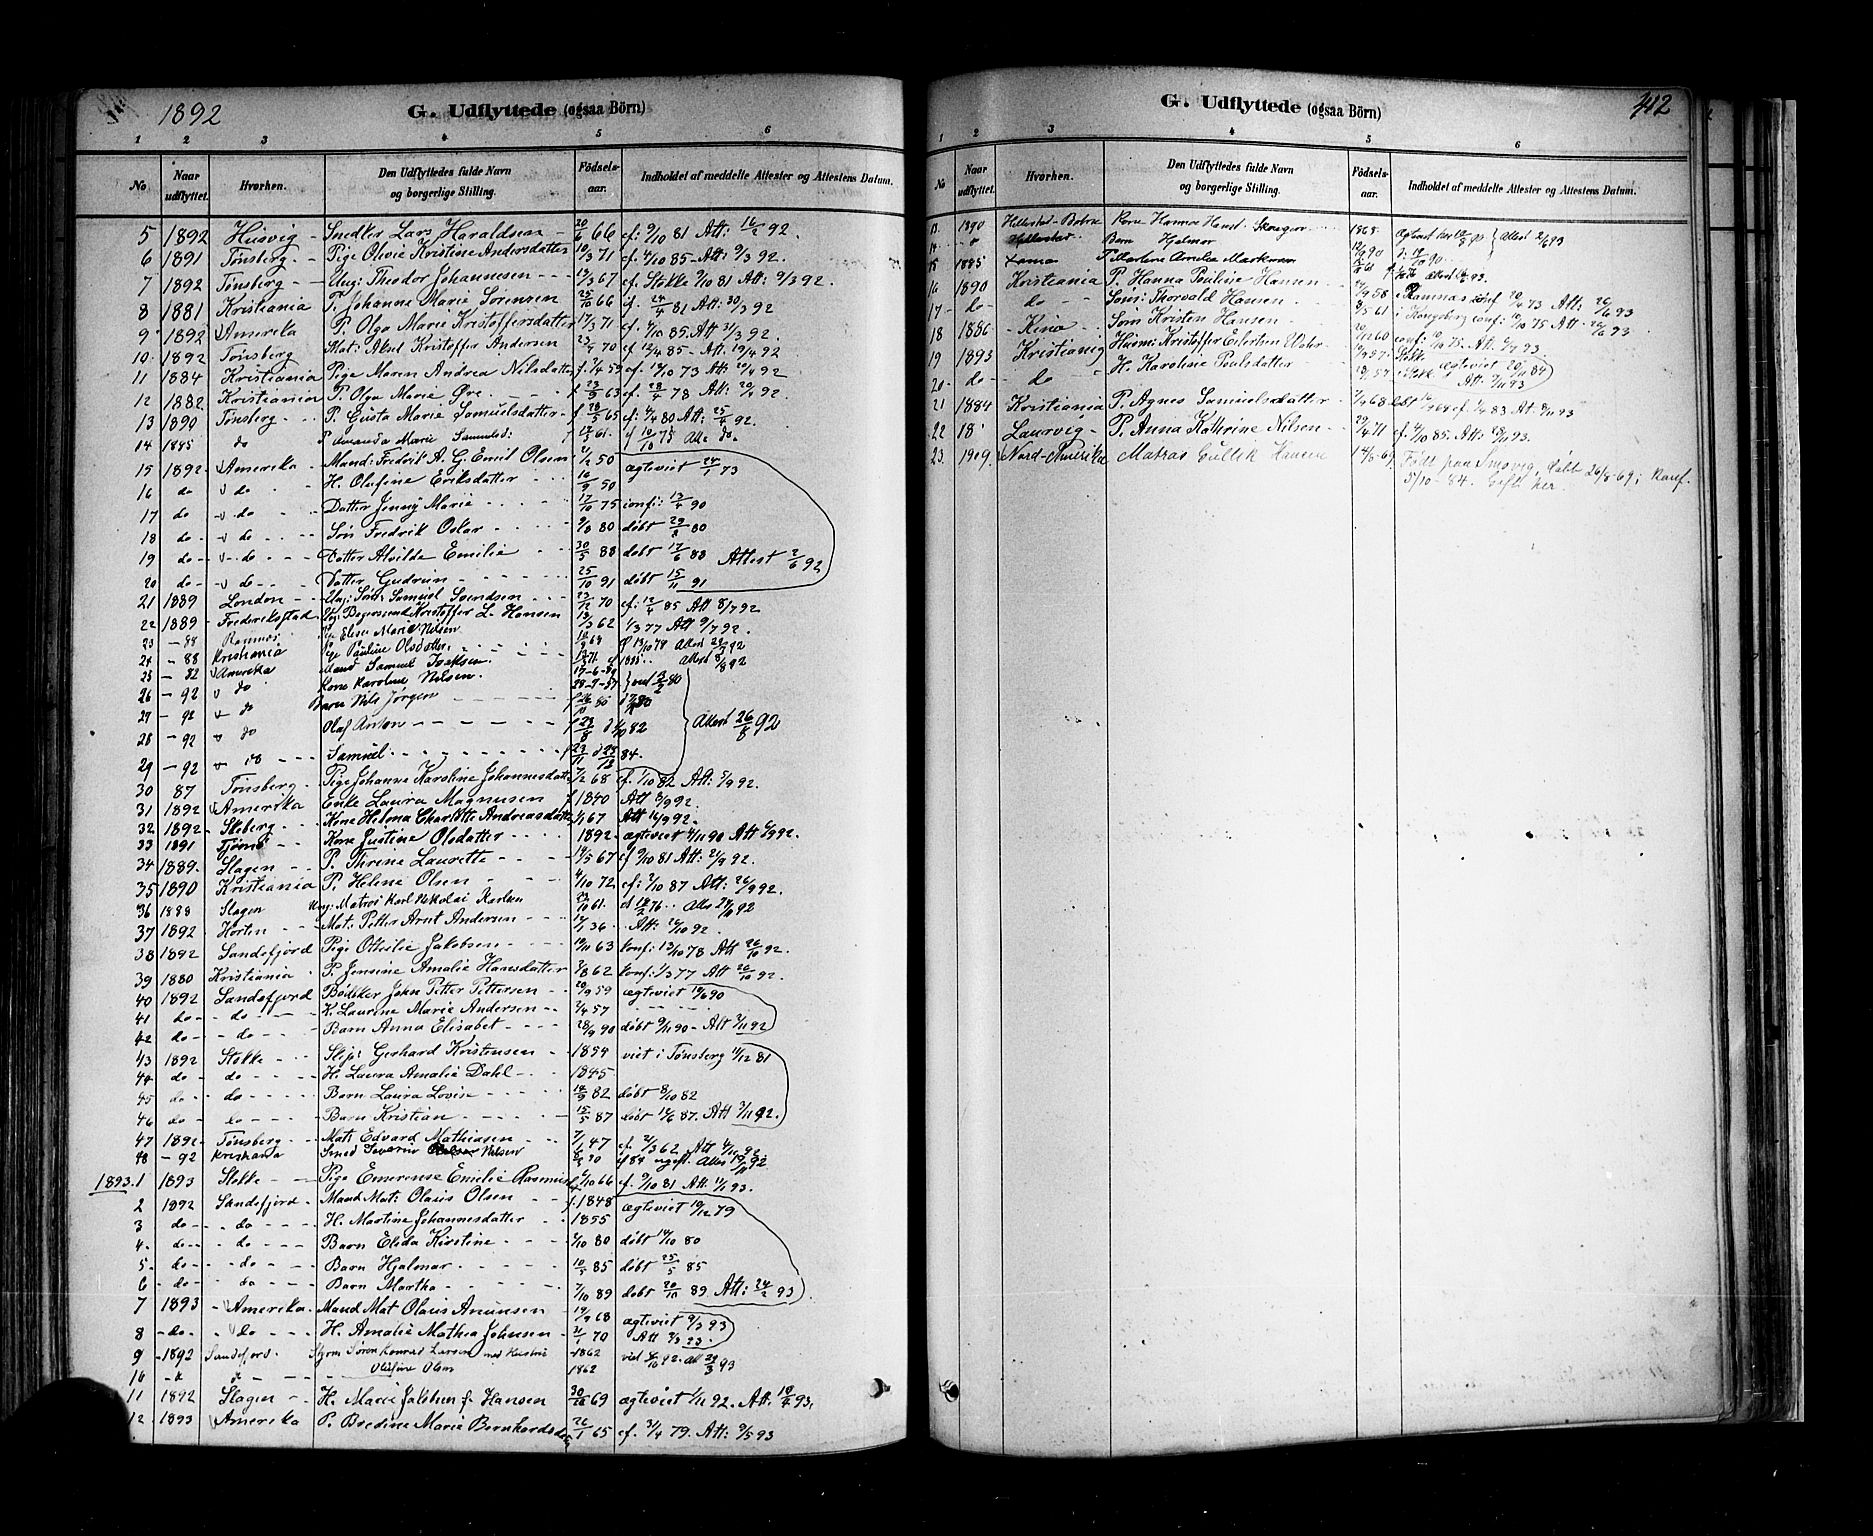 1892
G. Udflyttede (ogsaa Börn)
1 2 3 4 5 6
No Naar udflyttet. Hvorhen. Den Udflyttedes fulde Navn og borgerlige Stilling. Födsels-aar. Indholdet af meddelte Attester og Attestens Datum.
5 1892 Husvig Snedker Lars Haraldsen 20/6 66 cf: 9/10 81 Att: 16/2 92.
6 1891 Tønsberg Pige Olivie Kristine Andersdatter 10/3 71 cf: 4/10 85 Att: 9/3 92.
7 1892 Tønsberg Ung: Theodor Johannesen 13/3 67 cf: Stokke 9/10 81 Att: 9/3 92.
8 1881 Kristiania P. Johanne Marie Sørensen 25/10 66 cf. 24/4 81 Att: 30/3 92
9 1892 Amerika P. Olga Marie Kristoffersdatter 17/3 71 cf. 4/10 85. Att 31/3 92.
10 1892 Tønsberg Mat: Aksel Kristoffer Andersen 70 cf 12/4 85 - Att 19/4 92
11 1884 Kristiania Pige Maren Andrea Nilsdatter f. 7/4 59 cf: 19/10 73 Att 20/4 92
12 1882 Kristiania P. Olga Marie Øre 23/5 63 cf. 28/4 78 Att: 20/4 92.
13 1890 Tønsberg P. Gusta Marie Samuelsdatter f 28/5 65 cf: 4/4 80 Att: 25/4 92.
14 1885 do P Amanda Marie Samuelsd: 61. cf 10/10 75 Att do.
15 1892 Amerika Mand: Fredrik A. G. Emil Olsen 21/2 50 ægteviet 24/1 73
16 do do H. Olufine Eriksdatter 16/9 50
17 do do Datter Jenny Marie 17/10 75 conf: 13/4 90
18 do do Søn Fredrik Oskar 9/8 80 døbt 29/8 80
19 do do Datter Alvilde Emilie 30/5 88 døbt 17/6 88 Attest 2/6 92
20 do do Datter Gudrun 25/10 91 døbt 15/11 91
21 1889 London Ung: Søm: Samuel Svendsen 23/12 70 cf: 12/4 85 Att 8/7 92
22 1889 Frederikstad Kristoffer L. Hansen 13/3 62 1/3 77 Att 9/7 92.
23 - 88 Ramnes Pige Elise Marie Nilsen 63 13/10 78 Attest 92
24 - 88 Kristiania Pige Pauline Olsdatter 71 1885 Attest 8/8 92
25 - 82 Amerika Mand Samuel Isaksen.
26 - 92 do Kone Karoline Nilsen. 28-7-57 viet 80
27 - 92 do Barn Nils Jørgen 80
28 - 92 do Olaf Anton 82 Attest 26/8 92
29 - 92 do Samuel 23/11 84.
30 87 Tønsberg Pige Johanne Karoline Johannesdatter 7/2 68 cf. 1/10 82 Att: 5/9 92.
31 1892 Amerika Enke Laura Magnusen f 1840 Att 8/9 92.
32 1892 Skeberg Kone Helena Charlotte Andreasdatter 67 Att 16/9 92.
33 1891 Tjømø Kone Justine Olsdatter 1892. ægteviet 4/11 90 Att 6/9 92.
34 1889. Slagen P. Thrine Laurette 19/5 67 cf 9/10 81 Att: 21/9 92.
35 1890 Kristiania P. Helene Olsen 4/10 72 cf: 2/10 87 Att: 26/9 92.
36 1888 Slagen Ung: Matros Karl Nikolai Karlsen 61. 76 92
37 1892 Horten Mat: Petter Arnt Andersen 36 Att: 20/10 92.
38 1892 Sandefjord Pige Otteilie Jakobsen 19/11 63 konf: 13/10 78 Att 26/10 92.
39 1880 Kristiania P. Jensine Amalie Hansdatter 7/8 62 konf: 1/3 77 Att 26/10 92.
40 1892 Sandefjord Bødker John Petter Pettersen 20/9 59 ægteviet 19/6 90
41 do do K. Laurine Marie Andersen 7/4 57
42 do do Barn Anna Elisabet 28/9 90 døbt 9/11 90 - Att 3/11 92
43 1892 Stokke Slip: Gerhard Kristensen 1854 viet i Tønsberg 11/12 81
44 do do H. Laura Amalie Dahl 1845
45 do do Barn Laura Lovise 18/9 82 døbt 8/10 82
46 do do Barn Kristian 15/5 87 døbt 12/6 87. Att 3/11 92.
47 1892 Tønsberg Mat: Edvard Mathiasen 7/1 47 cf. 2/3 62 Att 4/11 92
48 - 92 Kristiania Smed Severin Nilsen 70 cf 84 ugift. Attest 92
1893. 1 1893 Stokke Pige Emerense Emilie Rasmus 6/10 66 cf. 9/10 81 Att. 11/1 93.
2 1892 Sandefjord Mand Mat: Olaus Olsen f. 1848 ægteviet 19/12 79
3 do do H. Martine Johannesdatter 1855
4. do do Barn Elida Kirstine 4/10 80 døbt 14/10 80
5. do do Barn Hjalmar 10/5 85 døbt 25/5 85
6 do do Barn Martha 7/10 89 døbt 20/11 89 Att: 24/2 93
7 1893 Amerika Mand Mat Olaus Amunsen 19/9 68 ægteviet 9/3 93
8 do do H. Amalie Mathea Johnsen 21/1 70 Att 3/3 93.
9 1892 Sandefjord. Styrm Søren Konrad Larsen med Hustru 1862 viet 92. Att 93
10 do Olufine Olsen 1862
11 1892 Slagen H. Marie Jakobsen f. Hansen 30/10 69 ægteviet 1/11 92. Att. 10/4 93.
12 1893 Amerika P. Bredine Marie Bernhardsdatter 26/1 65 cf. 3/4 79. Att: 9/5 93
G. Udflyttede (ogsaa Börn)
412
1 2 3 4 5 6
No Naar udflyttet. Hvorhen. Den Udflyttedes fulde Navn og borgerlige Stilling. Födsels-aar. Indholdet af meddelte Attester og Attestens Datum.
13. 1890 Hillestad - Botne Kone Hanna Hansd Skougen 1868 Attest 2/6 93
14 Hillestad Barn Hjalmar 90
15 1885 P Martine Amelia Markman 61 Attest 93.
16 1890 Kristiania P. Hanna Pauline Hansen 58 i Ramnæs conf 20/4 73 Att: 26/6 93
17 do do Søm: Thorvald Hansen 9/5 61 i Kongsberg conf: 10/10 75 Att. 26/6 93
18 1886 Kina Søm Kristen Hansen 60 conf: 75 Att. 93
19 1893 Kristiania Husm: Kristoffer Eilertsen 57 Stokke
20 do do H. Karoline Poulsdatter 57 Stokke ægteviet 20/11 84 Att. 7/11 93
21 1884 Kristiania P. Agnes Samuelsdatter 68 døbt cf. 1/4 83 At: 8/11 93
22 18 Laurvig P. Anna Kathrine Nilsen 29/4 71 cf. 4/10 85. Att: 28/11 93.
23. 1909. Nord-Amerika Matros Gullik Hansen 14/6-69 Født paa Smovig, døbt 26/8-69; Konf. 5/10-84. Gift her.